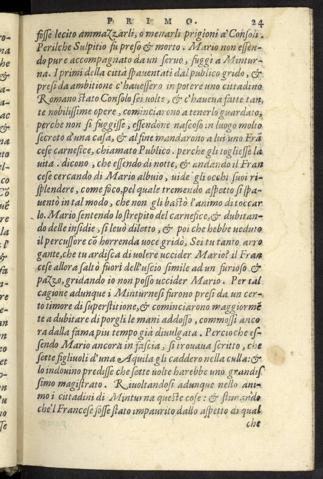 PRIMO. 24
fosse lecito ammazzarli, o menarli prigioni a' Consoli.
Perilche Sulpitio fu preso & morto. Mario non essen-
do pure accompagnato da un seruo, fuggì a Mintur-
na. I primi della città spauentati dal publico grido, &
presi da ambitione c'hauessero in potere uno cittadino
Romano stato Consolo sei uolte, & c'haueua fatte tan-
te nobilissime opere, cominciarono a tenerlo guardato,
perche non si fuggisse, essendone nascoso in luogo molto
secreto d'una casa, & al fine mandarono a lui uno Fra
cese carnefice, chiamato Publico. perche gli togliesse la
uita. dicono, che essendo di notte, & andando il Fran
cese cercando di Mario albuio, uide gli occhi suoi ri-
splendere, come foco. pel quale tremendo aspetto si spa-
uentò in tal modo, che non gli bastò l'animo di toccar
lo. Mario sentendo lo strepito del carnefice, & dubitan-
do delle insidie, si leuò diletto, & poi che hebbe ueduto
il percussore cō horrenda uoce gridò, Sei tu tanto arro
gante, che tu ardisca di uolere uccider Mario? il Fran
cese allora saltò fuori dell'uscio simile ad un furioso. &
pazzo, gridando io non posso uccider Mario. Per tal
cagione adunque i Minturnesi furono presi da un cer-
to timore di superstitione, & cominciarono maggiormē
te a dubitare di porgli le mani addosso, commossi anco
ra dalla fama piu tempo già diuulgata. Percioche es-
sendo Mario ancora in fascia, si trouaua scritto, che
sette figliuoli d'una Aquila gli caddero nella culla: &
lo indouino predisse che sette uolte harebbe uno grandis
simo magistrato. Riuoltandosi adunque nello ani-
mo i cittadini di Minturna queste cose: & stimando
che'l Francese fosse stato impaurito dallo aspetto di qual
che